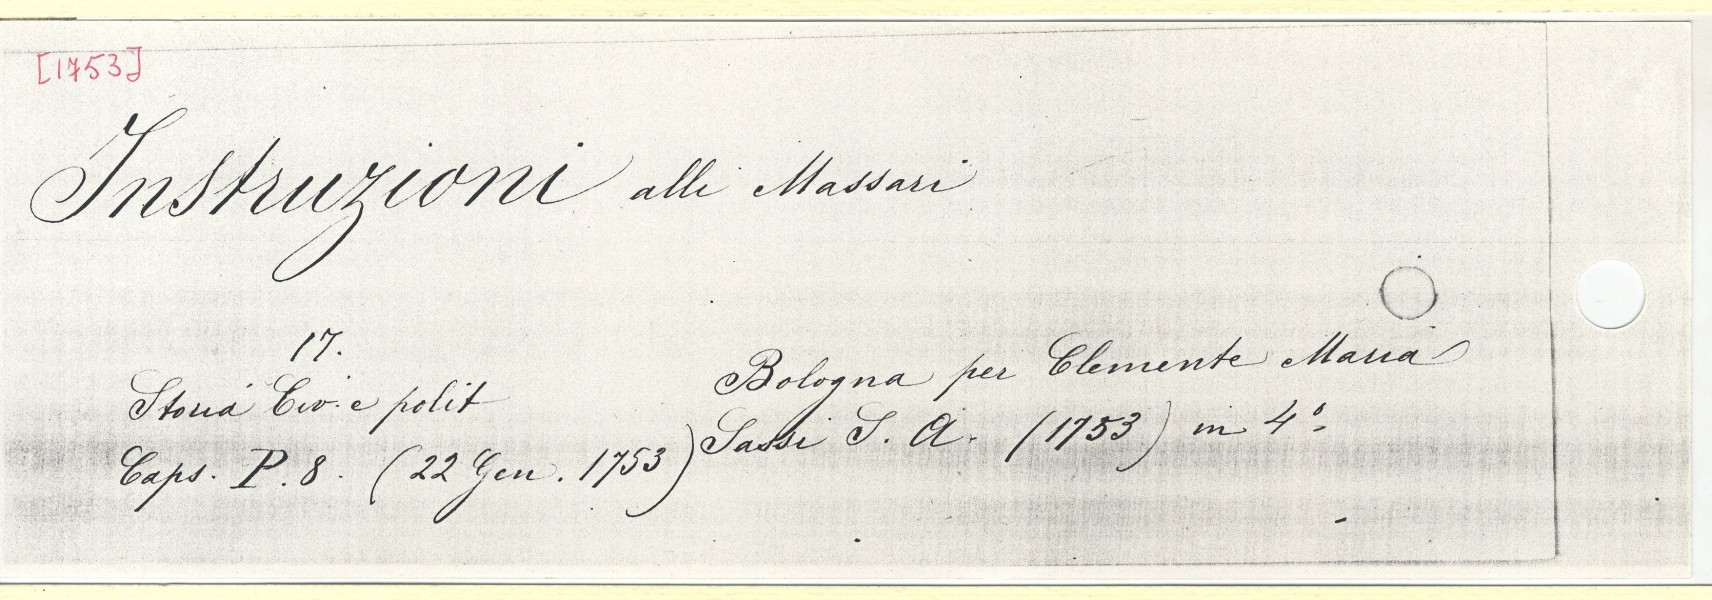 [1753]
Instruzioni alli Massari
17.
Storia Civ. e polit
Caps. P. 8. (22 Gen. 1753)
Bologna per Clemente Maria
Sassi S. A. (1753) in 4°-